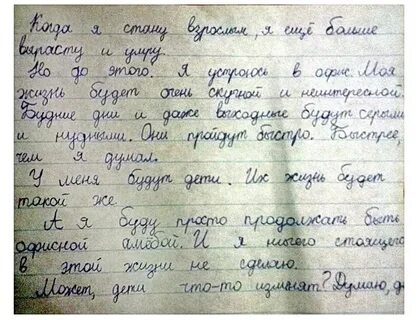 Когда я стану взрослым, я ещё больше
вырасту и умру.
Но до этого. Я устроюсь в офис. Моя
жизнь будет очень скучной и неинтересной.
Будние дни и даже выходные будут серыми
и нудными. Они пройдут быстро. Быстрее,
чем я думал.
У меня будут дети. Их жизнь будет
такой же
А я буду просто продолжать быть
офисной амёбой. И я ничего стоящего
в этой жизни не сделаю.
Может, дети что-то изменят? Думаю, да